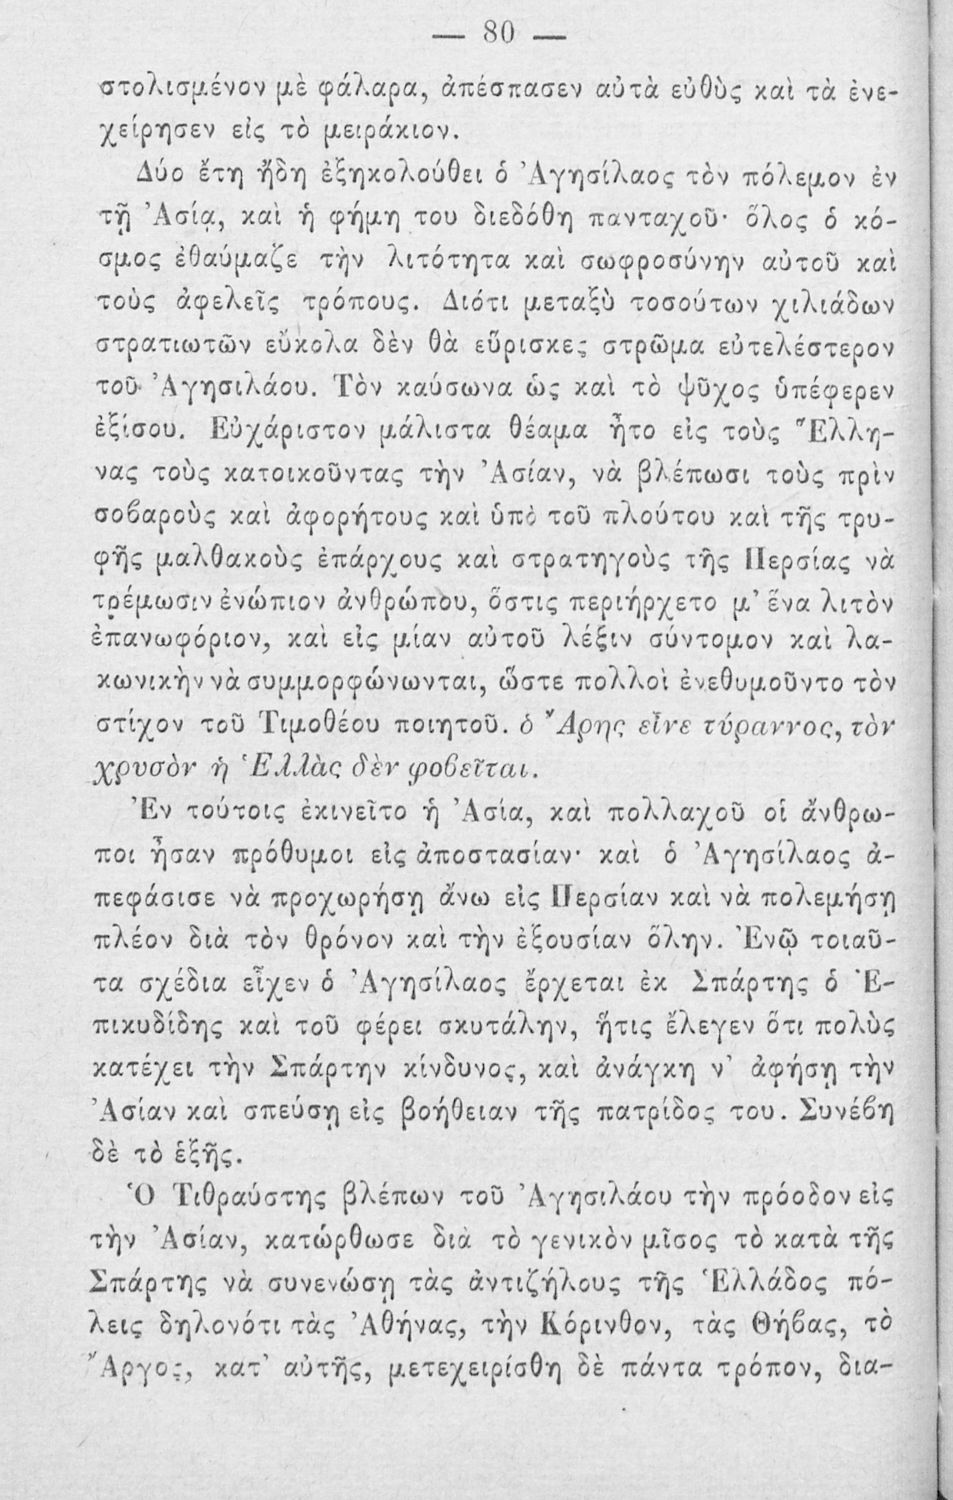 — 80 —
στολισμένον μὲ φάλαρα, ἀπέσπασεν αὐτὰ εὐθὺς καὶ τὰ ἐνε-
χείρησεν εἰς τὸ μειράκιον.
Δύο ἔτη ἤδη ἐξηκολούθει ὁ Ἀγησίλαος τὸν πόλεμον ἐν
τῇ Ἀσίᾳ, καὶ ἡ φήμη του διεδόθη πανταχοῦ· ὅλος ὁ κό-
σμος ἐθαύμαζε τὴν λιτότητα καὶ σωφροσύνην αὐτοῦ καὶ
τοὺς ἀφελεῖς τρόπους. Διότι μεταξὺ τοσούτων χιλιάδων
στρατιωτῶν εὔκολα δὲν θὰ εὕρισκες στρῶμα εὐτελέστερον
τοῦ Ἀγησιλάου. Τὸν καύσωνα ὡς καὶ τὸ ψῦχος ὑπέφερεν
ἐξίσου. Εὐχάριστον μάλιστα θέαμα ἦτο εἰς τοὺς Ἕλλη-
νας τοὺς κατοικοῦντας τὴν Ἀσίαν, νὰ βλέπωσι τοὺς πρὶν
σοβαροὺς καὶ ἀφορήτους καὶ ὑπὸ τοῦ πλούτου καὶ τῆς τρυ-
φῆς μαλθακοὺς ἐπάρχους καὶ στρατηγοὺς τῆς Περσίας νὰ
τρέμωσιν ἐνώπιον ἀνθρώπου, ὅστις περιήρχετο μ’ ἕνα λιτὸν
ἐπανωφόριον, καὶ εἰς μίαν αὐτοῦ λέξιν σύντομον καὶ λα-
κωνικὴν νὰ συμμορφώνωνται, ὥστε πολλοὶ ἐνεθυμοῦντο τὸν
στίχον τοῦ Τιμοθέου ποιητοῦ. ὁ Ἄρης εἶνε τύραννος, τὸν
χρυσὸν ἡ Ἑλλὰς δὲν φοβεῖται.
Ἐν τούτοις ἐκινεῖτο ἡ Ἀσία, καὶ πολλαχοῦ οἱ ἄνθρω-
ποι ἦσαν πρόθυμοι εἰς ἀποστασίαν· καὶ ὁ Ἀγησίλαος ἀ-
πεφάσισε νὰ προχωρήσῃ ἄνω εἰς Περσίαν καὶ νὰ πολεμήσῃ
πλέον διὰ τὸν θρόνον καὶ τὴν ἐξουσίαν ὅλην. Ἐνῷ τοιαῦ-
τα σχέδια εἶχεν ὁ Ἀγησίλαος ἔρχεται ἐκ Σπάρτης ὁ Ἐ-
πικυδίδης καὶ τοῦ φέρει σκυτάλην, ἥτις ἔλεγεν ὅτι πολὺς
κατέχει τὴν Σπάρτην κίνδυνος, καὶ ἀνάγκη ν’ ἀφήσῃ τὴν
Ἀσίαν καὶ σπεύσῃ εἰς βοήθειαν τῆς πατρίδος του. Συνέβη
δὲ τὸ ἑξῆς.
Ὁ Τιθραύστης βλέπων τοῦ Ἀγησιλάου τὴν πρόοδον εἰς
τὴν Ἀσίαν, κατώρθωσε διὰ τὸ γενικὸν μῖσος τὸ κατὰ τῆς
Σπάρτης νὰ συνενώσῃ τὰς ἀντιζήλους τῆς Ἑλλάδος πό-
λεις δηλονότι τὰς Ἀθήνας, τὴν Κόρινθον, τὰς Θήβας, τὸ
Ἄργος, κατ’ αὐτῆς, μετεχειρίσθη δὲ πάντα τρόπον, δια-